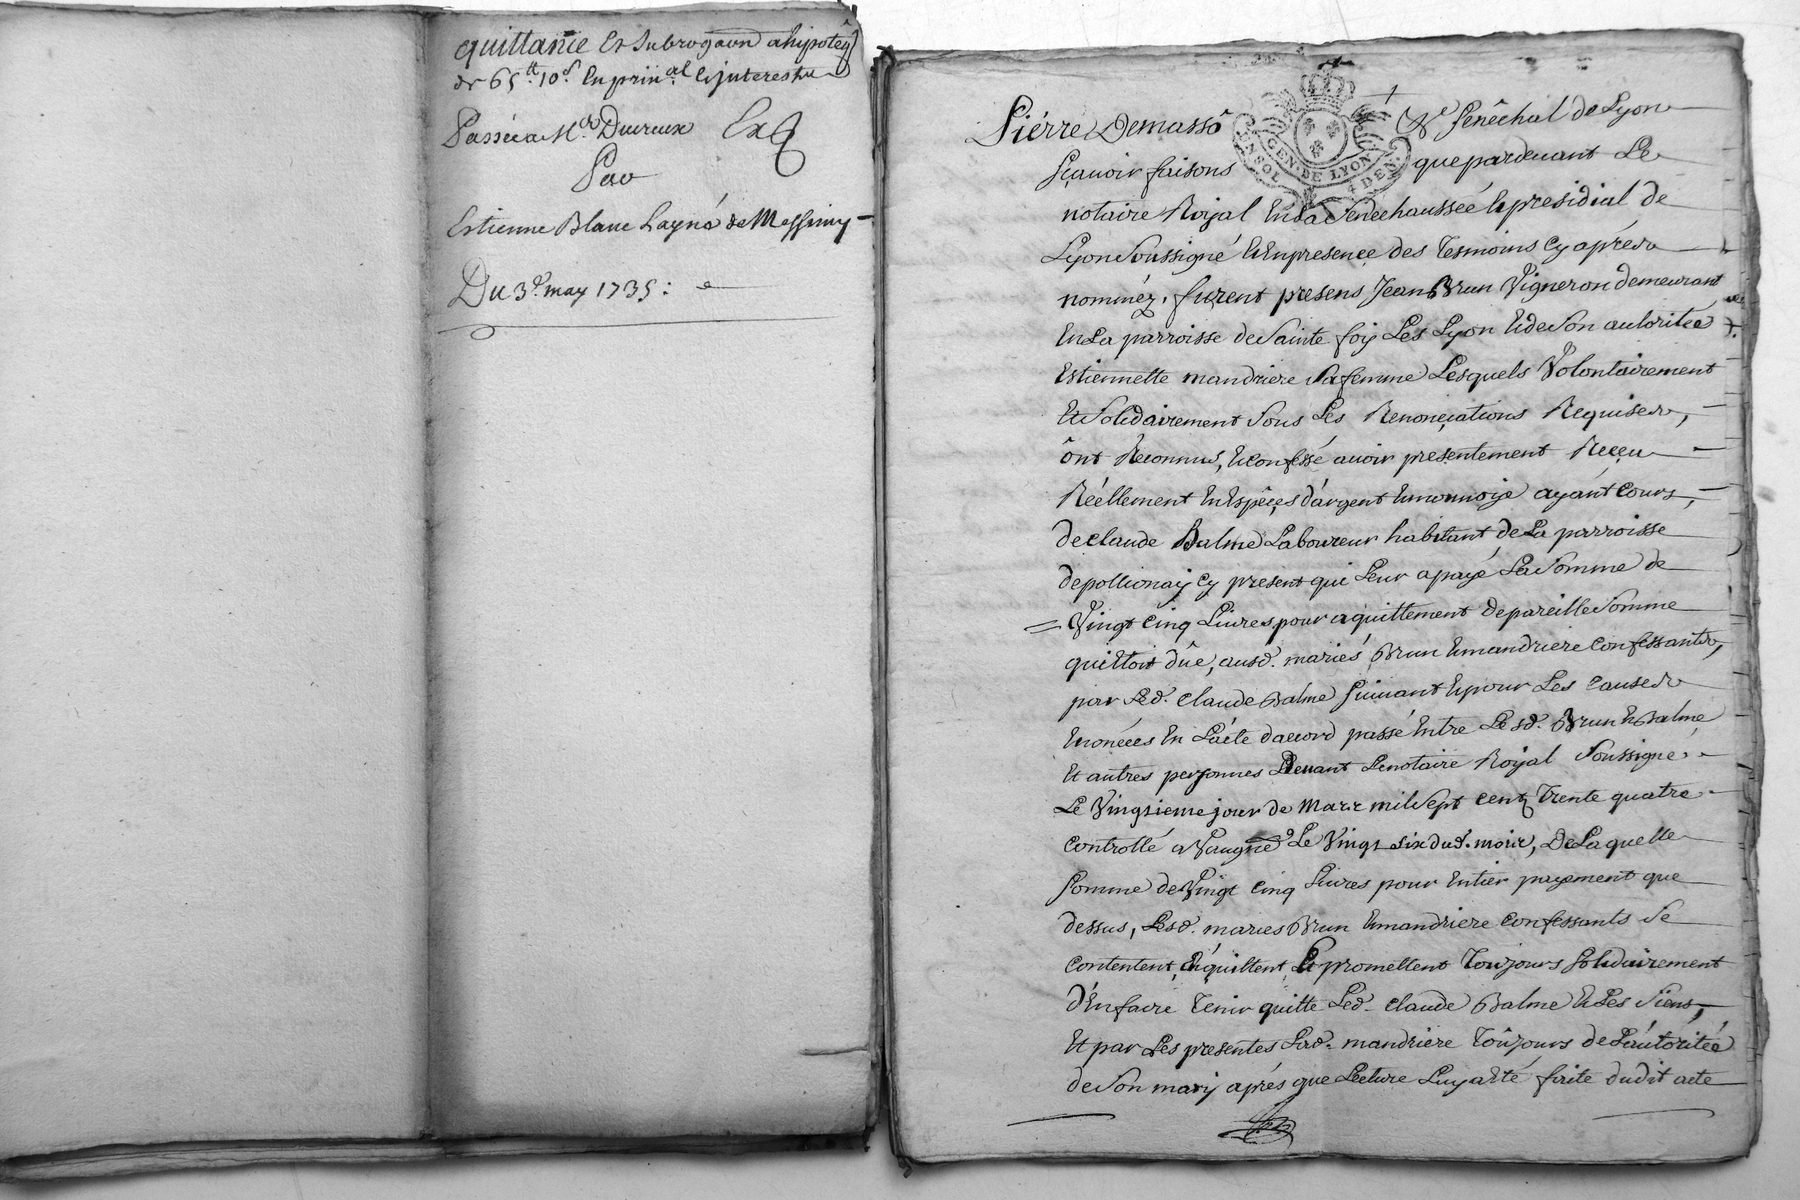 quittance Et Subrogaon ahipoteq
de 65tt 10s En prinal & interest
Passée a Mr Ducreux Ex
Par
Estienne Blanc Layné de Messimy
Du 3e. may 1735 :
Pierre Demasso &c Senêchal de Lyon
GEN. DE LYON
Sçavoir faisons que pardevant Le
notaire Royal En La Senechaussée & presidial de
Lyon Soussigné & En presence des Tesmoins Cy aprés
nomméz. furent presens Jean Brun Vigneron demeurant
En La parroisse de Sainte foy Les Lyon & de Son autoritée
Estiennette mandriere Sa femme Lesquels Volontairement
Et Solidairement Sous Les Renonçiations Requises,
ônt Reconnus, & confessé avoir presentement Reçeu
Réellement En Espêçes d'argent & monnoye ayant Cours,
de claude Balme Laboureur habitant de La parroisse
de pollionay Cy present qui Leur a payé La Somme de
Vingt Cinq Livres pour aquittement de pareille Somme
qui Etoit dûe, ausd. mariés Brun & mandriere Confessants,
par Led. Claude Balme Suivant & pour Les Causes
Enoncées En L'acte d'accord passé Entre Lesd. Brun & Balme
Et autres personnes Devant Le notaire Royal Soussigné.
Le Vingtieme jour de Mars mil Sept Cent Trente quatre
Controllé a Vaugne Le Vingt Six dud. mois, De Laquelle
Somme de Vingt Cinq Livres pour Entier payement que
dessus, Lesd. maries Brun & mandriere Confessants Se
Contentent, En quittent & promettent Toujours Solidairement
d'En faire Tenir quitte Led. Claude Balme & Les Siens,
Et par Les presentes Lad. mandriere Toûjours de L'autoritée
de Son mary aprés que Lecture Luy a Eté faite dudit acte